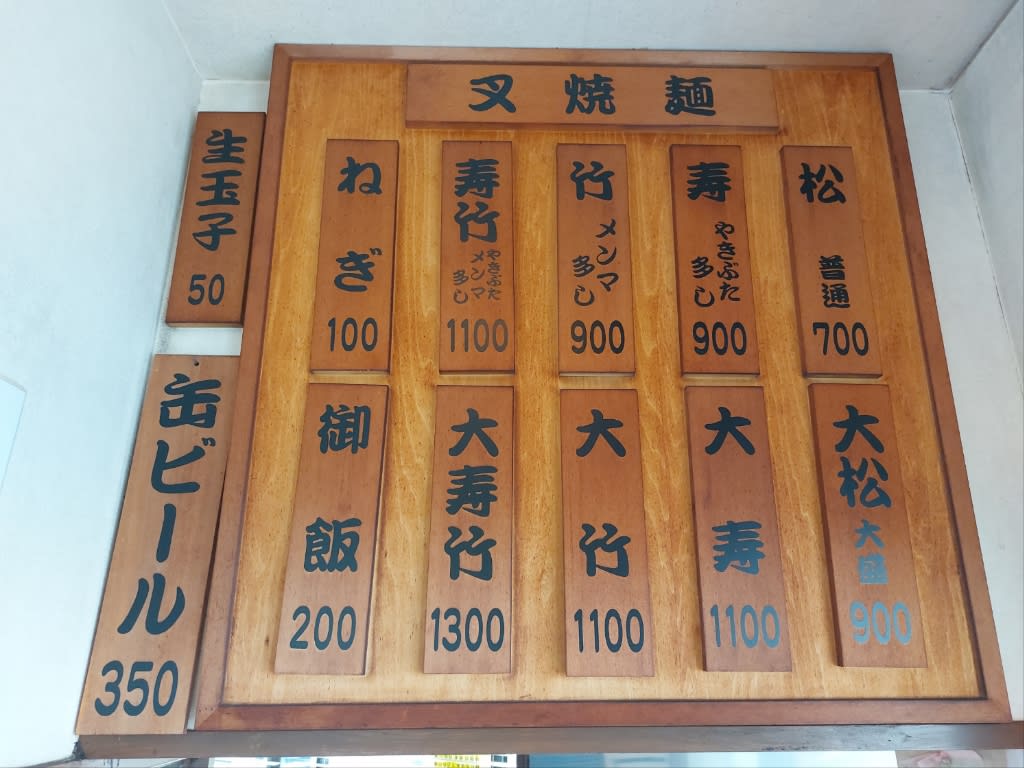 叉焼麺
松
普通
700
寿
やきぶた
多し
900
竹
メンマ
多し
900
寿竹
やきぶた
メンマ
多し
1100
ねぎ
100
大松
大盛
900
大寿
1100
大竹
1100
大寿竹
1300
御飯
200
生玉子
50
缶ビール
350